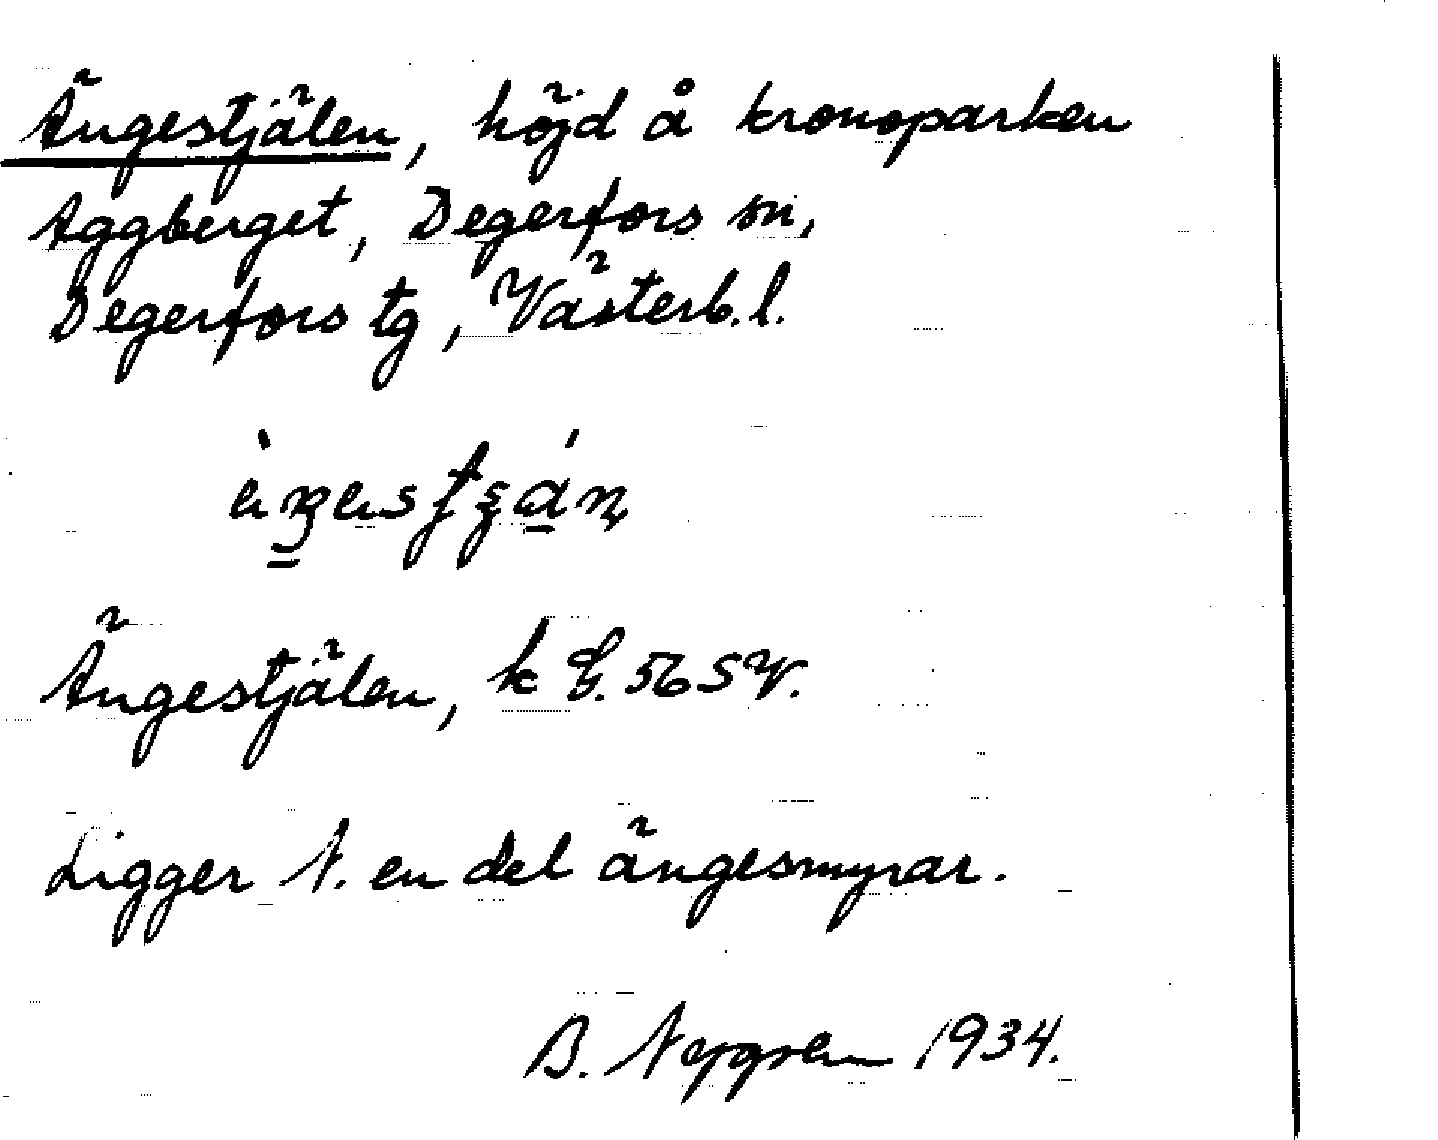 Ängestjälen, höjd å kronoparken
Aggberget, Degerfors sn,
Degerfors tg, Västerb. l.
Ängestjälen, k G. 56 SV.
Ligger N. en del ängesmyrar.
B. Nygren 1934.